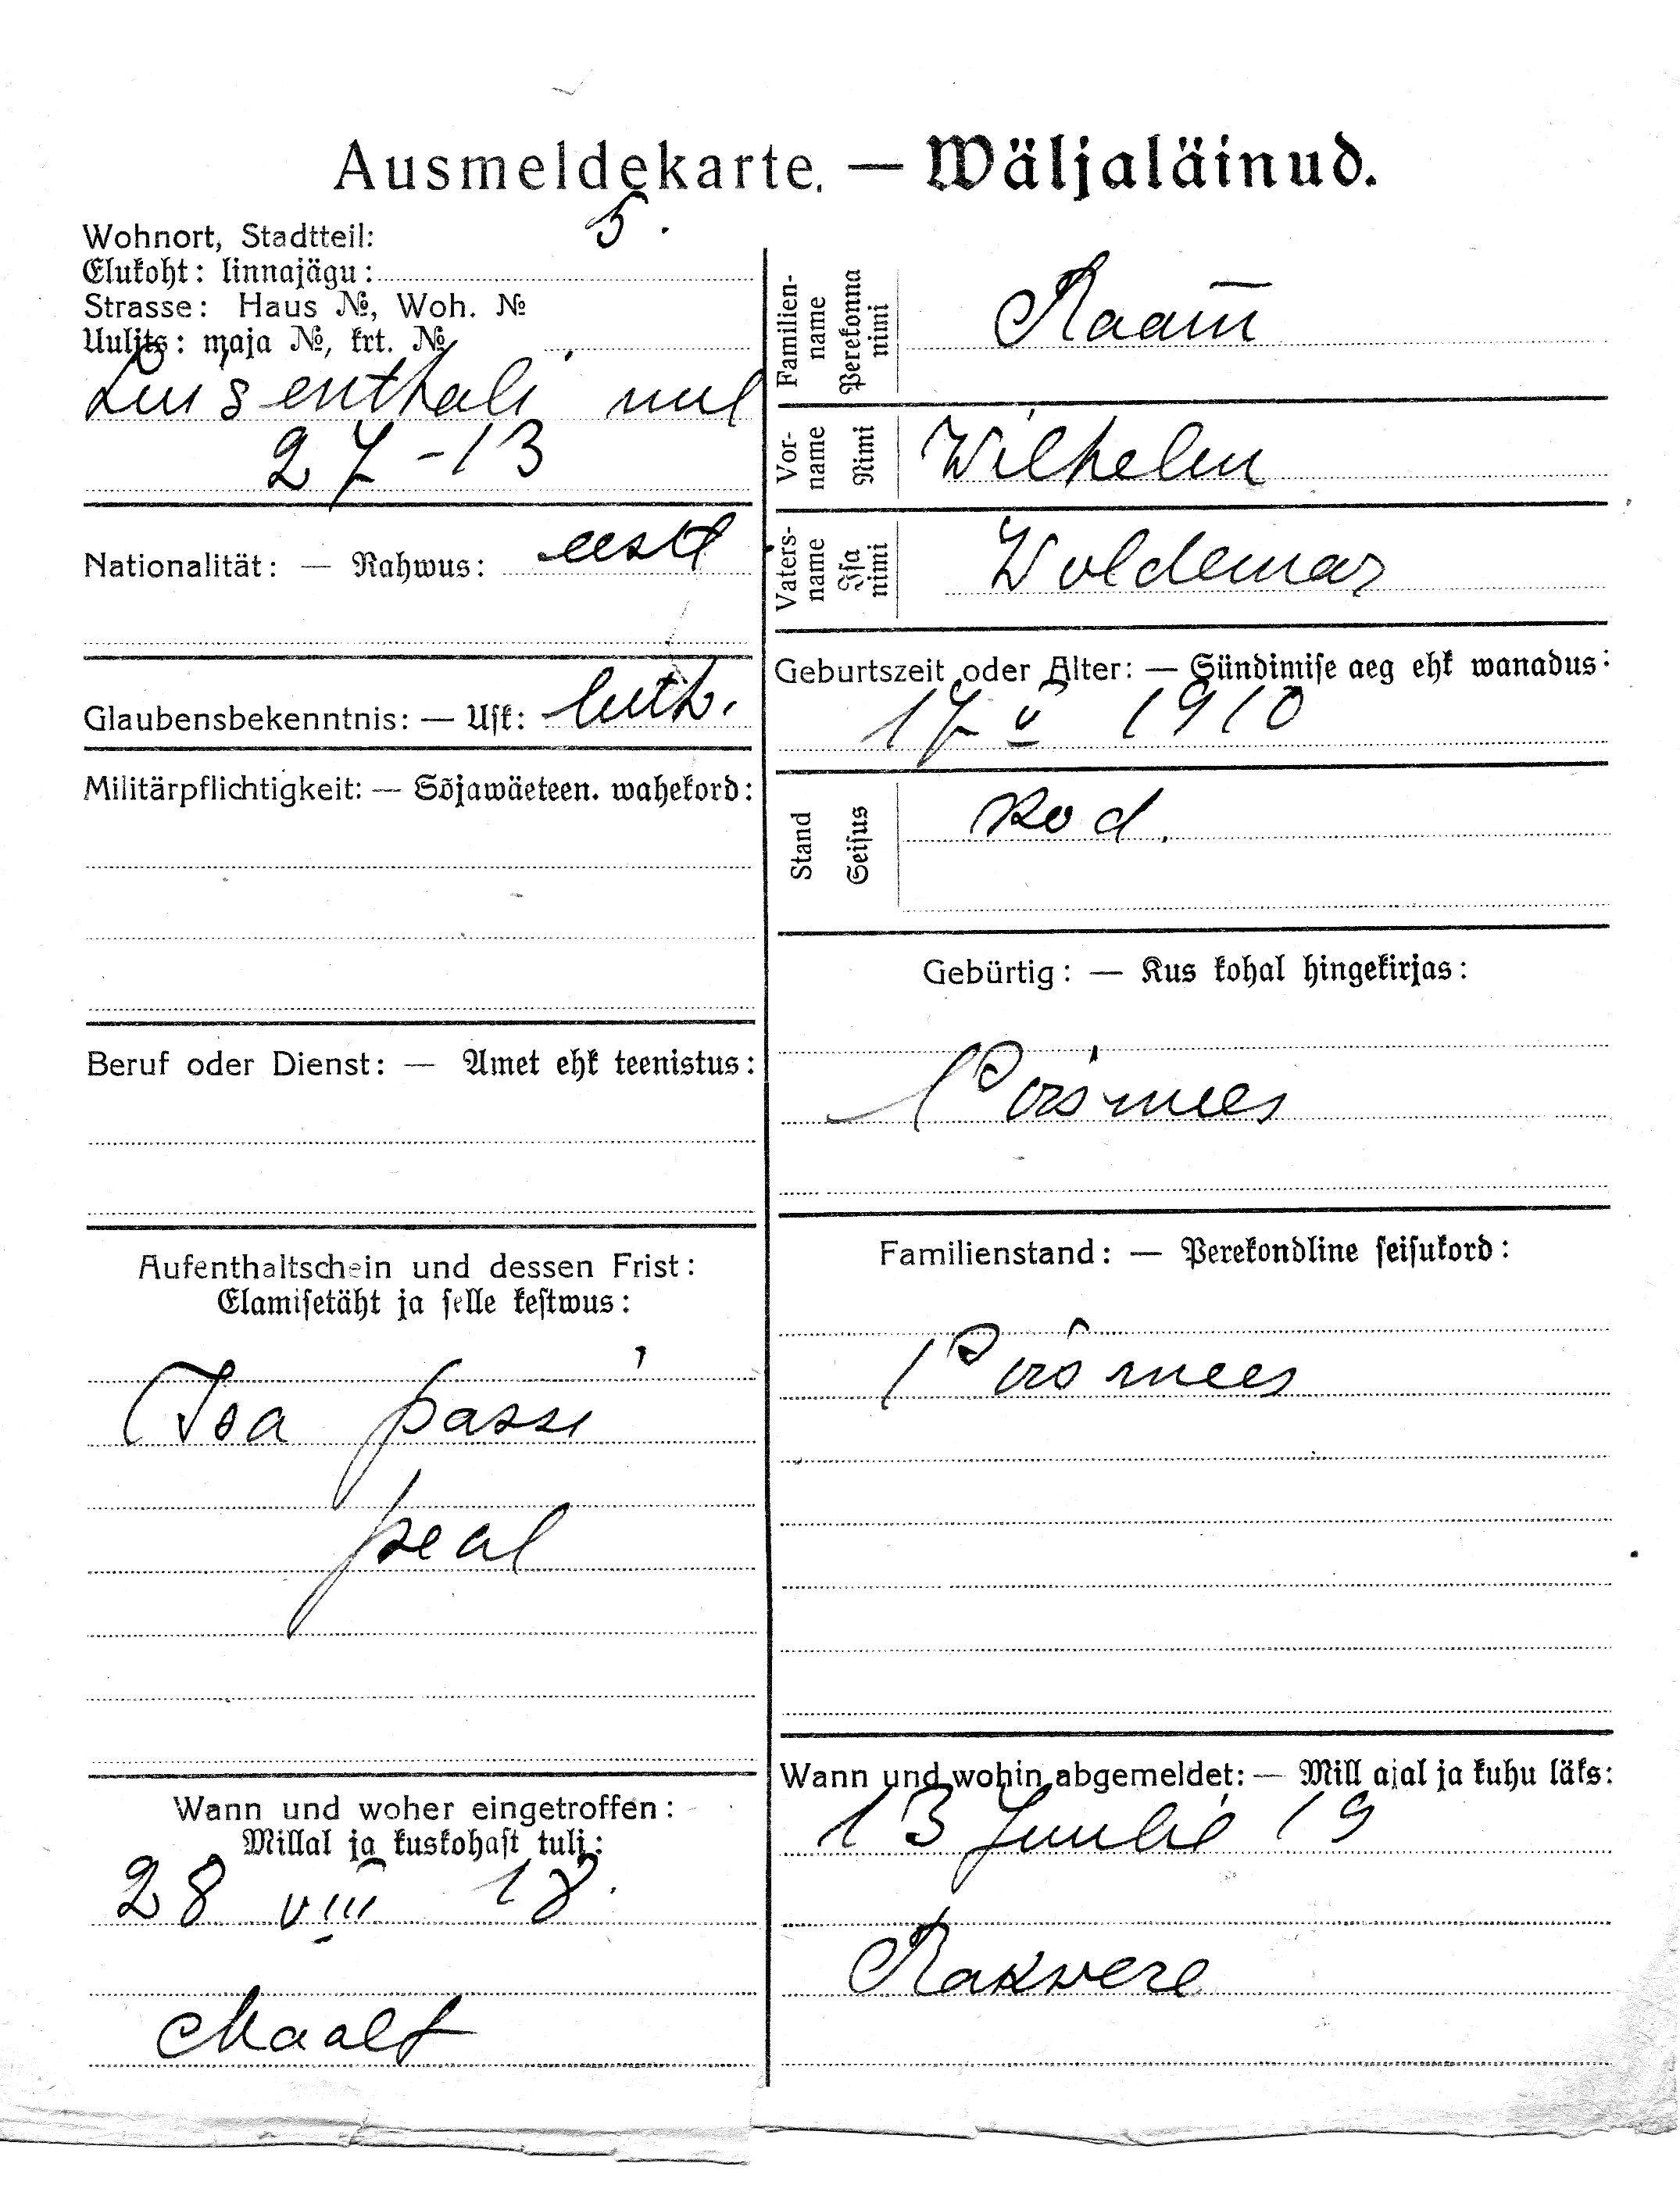 Ausmeldekarte. — Wäljaläinud.
Wohnort, Stadtteil: 5.
Elukoht: linnajägu:
Strasse: Haus №, Woh. №
Uulits: maja №, krt. №
27-13
Nationalität: — Rahwus: eesti
Glaubensbekenntnis: — Usk: luth.
Militärpflichtigkeit: — Sõjawäeteen. wahekord:
Beruf oder Dienst: — Amet ehk teenistus:
Aufenthaltschein und dessen Frist:
Elamisetäht ja selle kestwus:
Isa passi
peal
Wann und woher eingetroffen:
Millal ja kuskohast tuli:
28 VIII 18.
Maalt
Familien-
name
Perekonna
nimi
Vor-
name
Nimi
Wilhelm
Vaters-
name
Isa
nimi
Woldemar
Geburtszeit oder Alter: — Sündimise aeg ehk wanadus:
17 V 1910
Stand
Seisus
Kod.
Gebürtig: — Kus kohal hingekirjas:
Familienstand: — Perekondline seisukord:
Wann und wohin abgemeldet: — Mill ajal ja kuhu läks:
13 Juulil 19
Rakvere